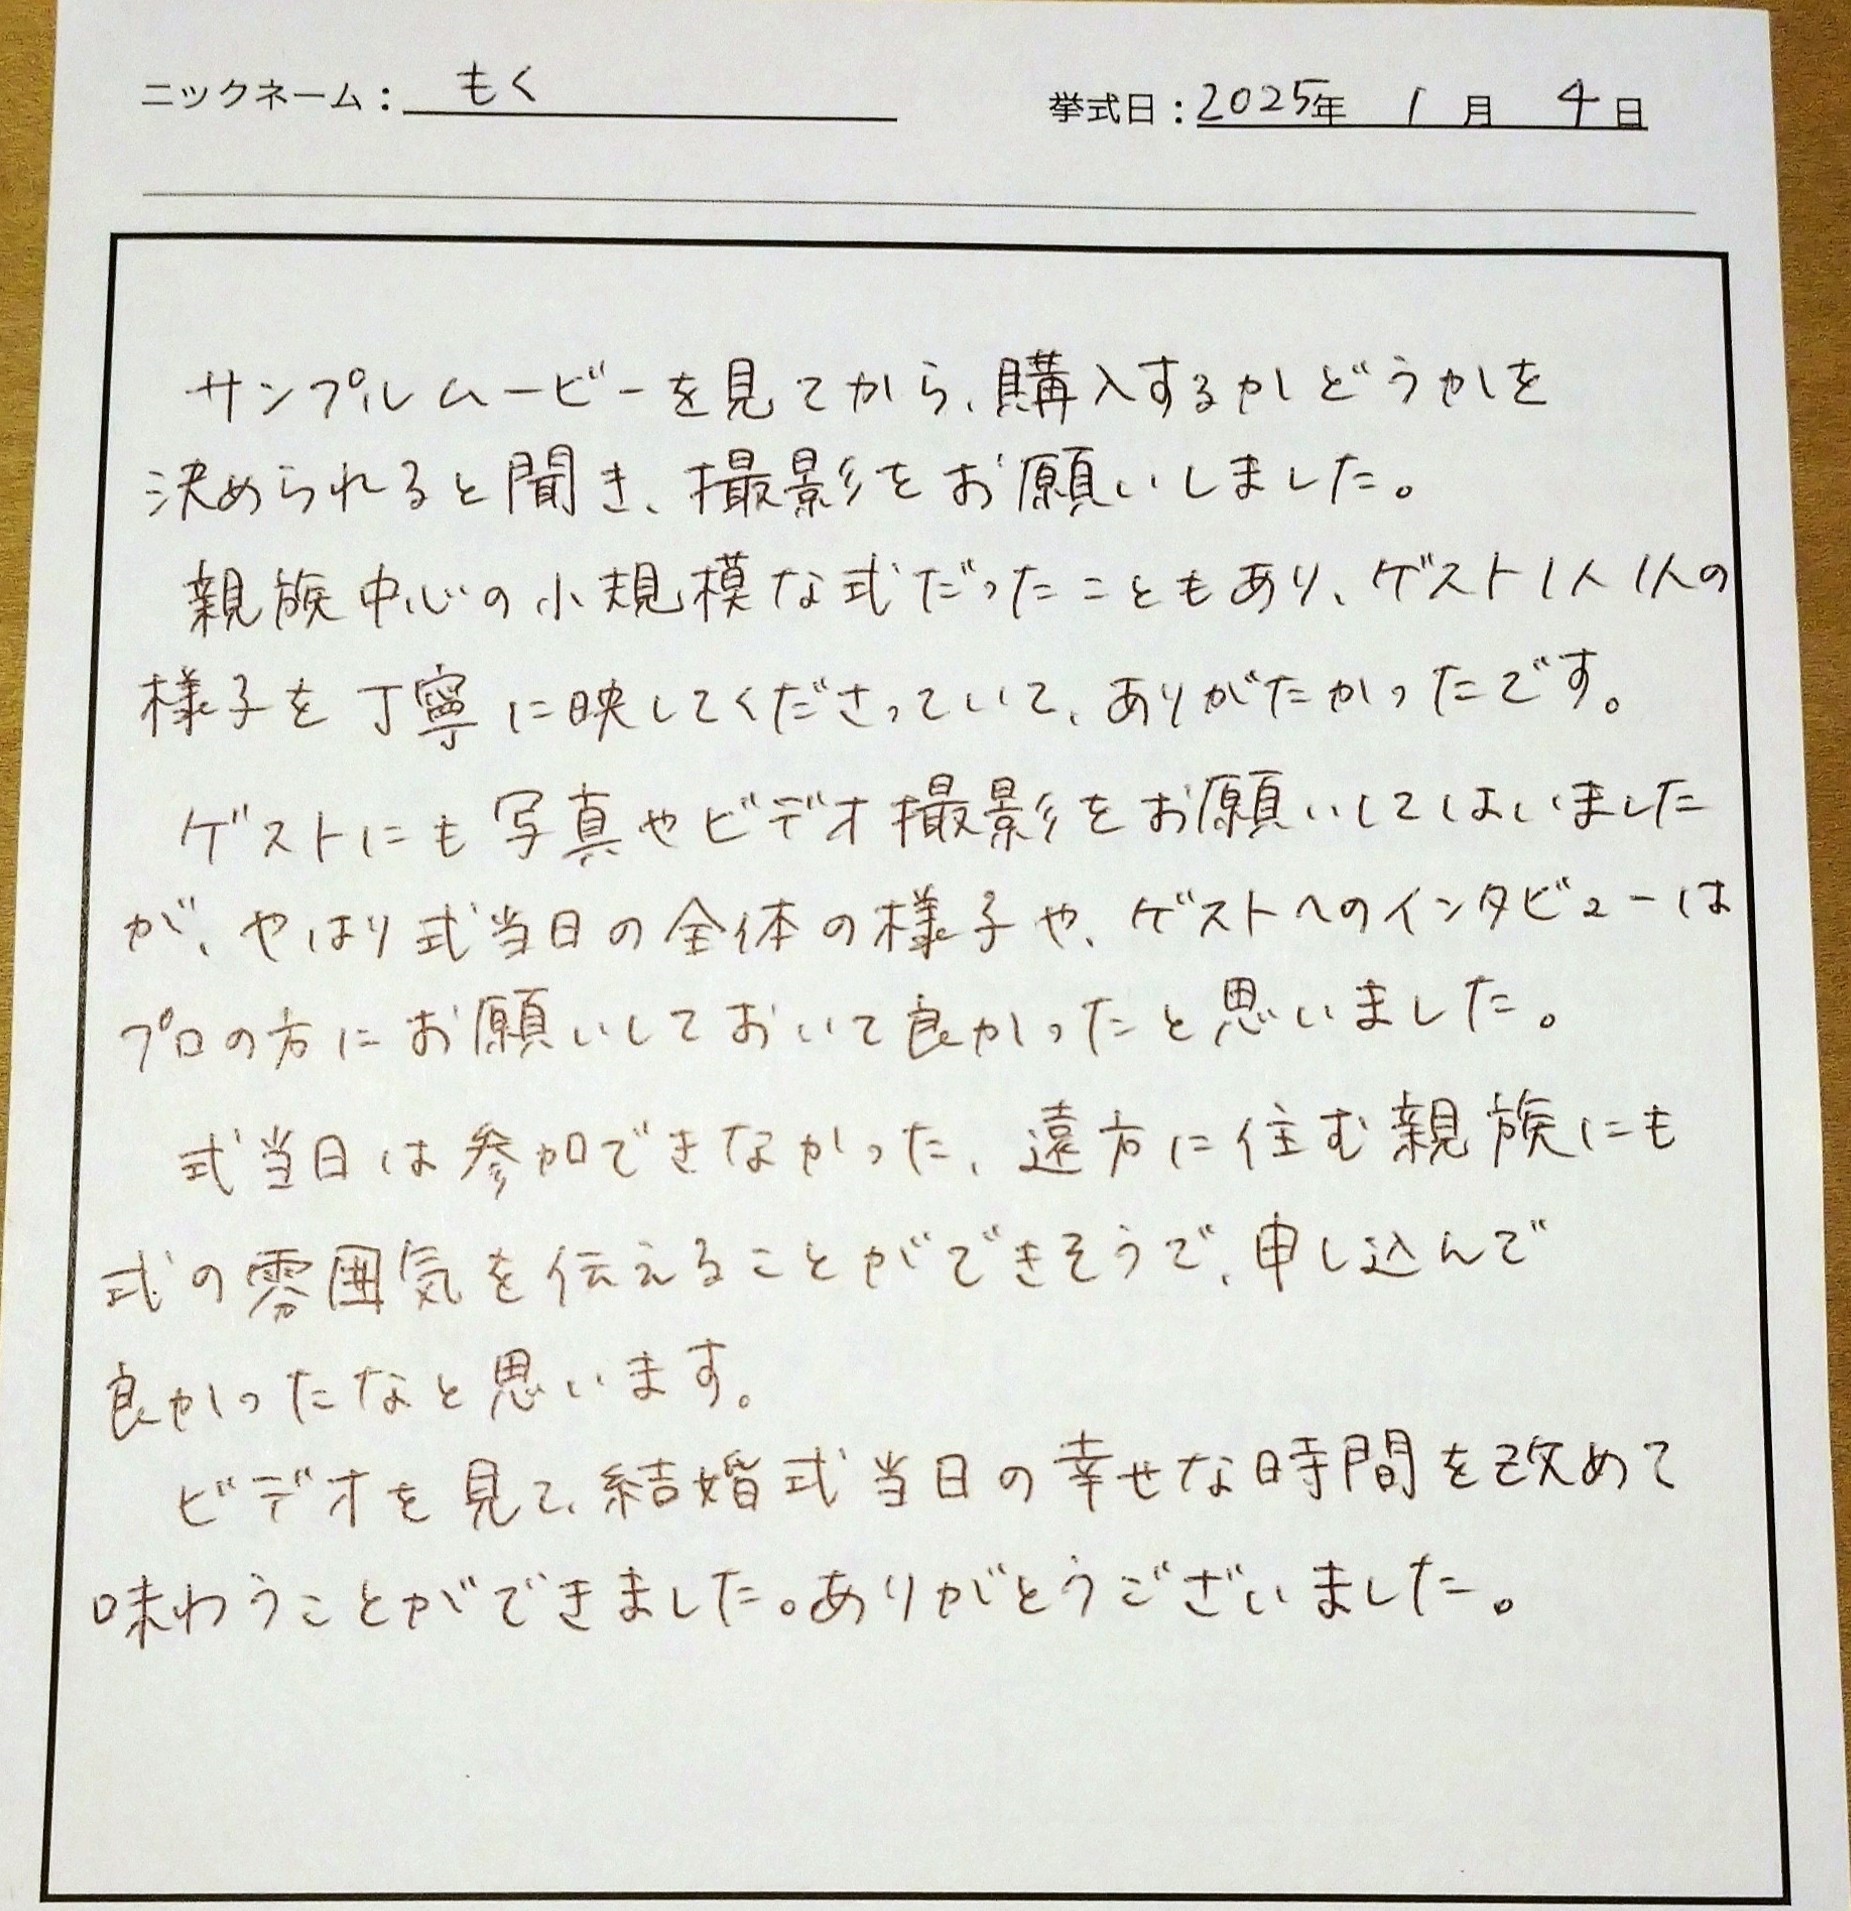 ニックネーム：もく 挙式日：2025年 1月 4日
サンプルムービーを見てから、購入するかどうかを
決められると聞き、撮影をお願いしました。
親族中心の小規模な式だったこともあり、ゲスト1人1人の
様子を丁寧に映してくださっていて、ありがたかったです。
ゲストにも写真やビデオ撮影をお願いしてはいました
が、やはり式当日の全体の様子や、ゲストへのインタビューは
プロの方にお願いしておいて良かったと思いました。
式当日は参加できなかった、遠方に住む親族にも
式の雰囲気を伝えることができそうで、申し込んで
良かったなと思います。
ビデオを見て、結婚式当日の幸せな時間を改めて
味わうことができました。ありがとうございました。